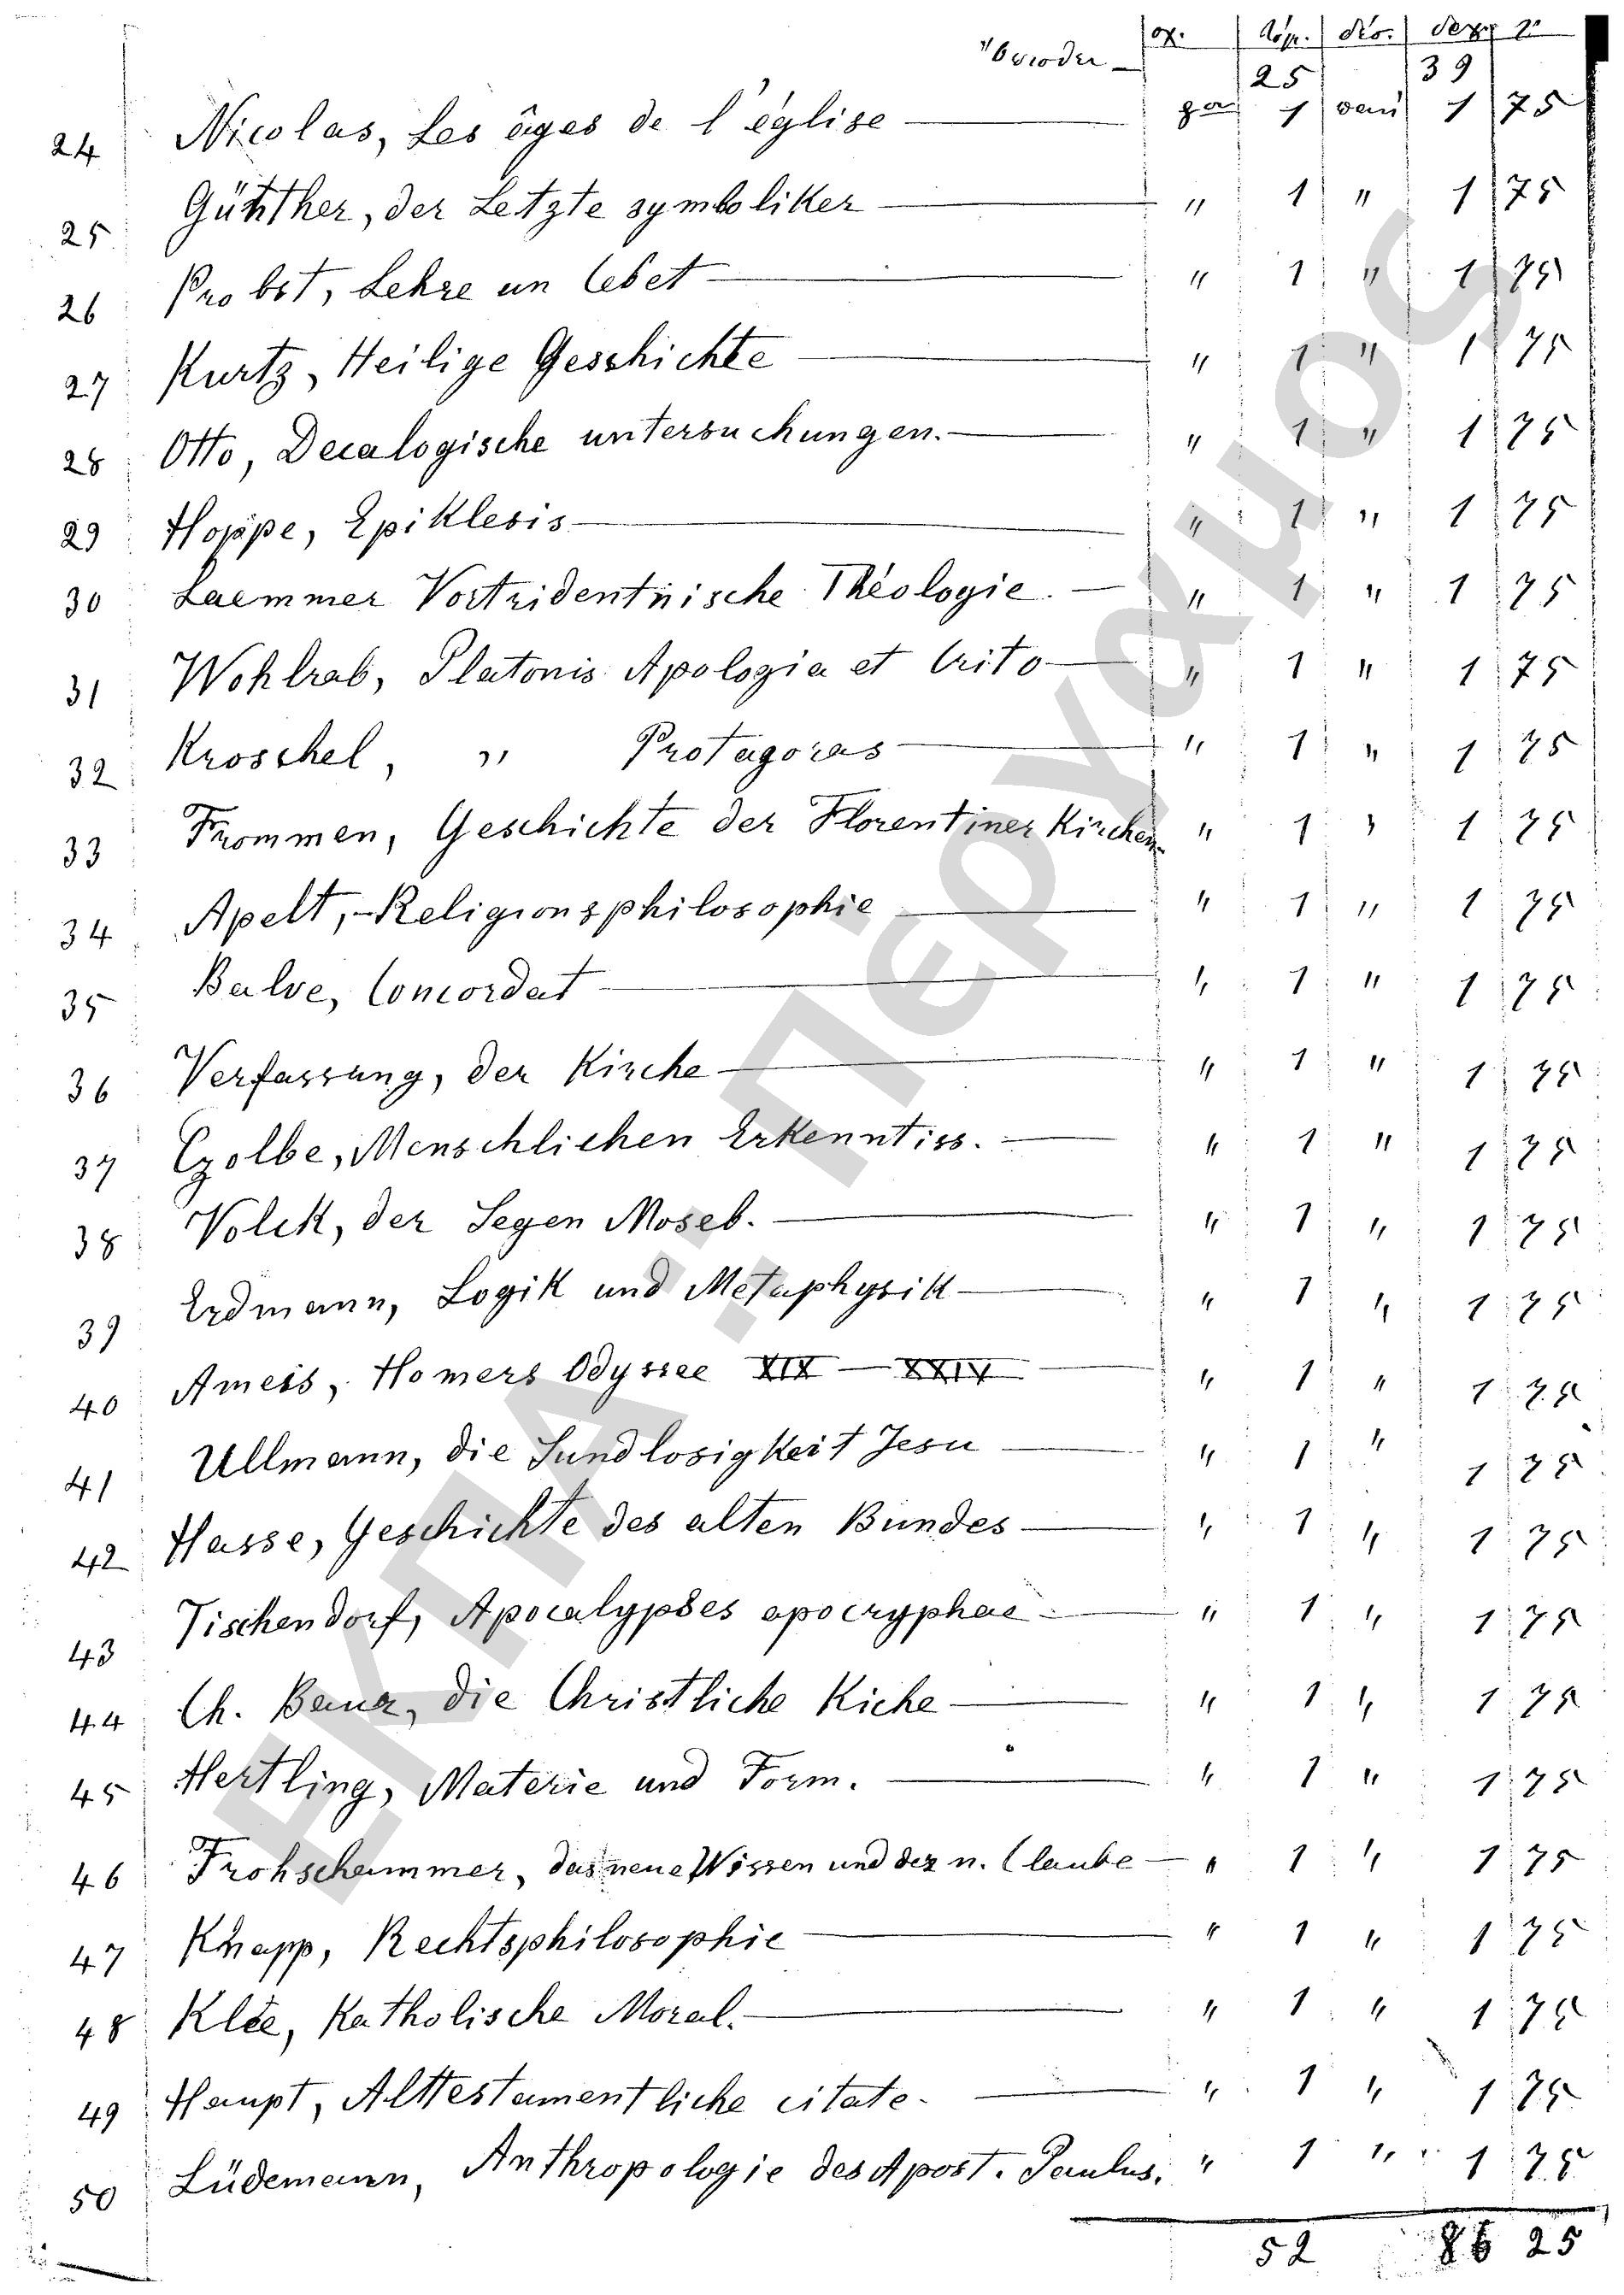 25 39
24 Nicolas, Les âges de l'église 1 1 75
25 Günther, der Letzte symboliker " 1 " 1 75
26 Probst, Lehre un Cebet " 1 " 1 75
27 Kurtz, Heilige Geschichte " 1 " 1 75
28 Otto, Decalogische untersuchungen. " 1 " 1 75
29 Hoppe, Epiklesis " 1 " 1 75
30 Laemmer Vortridentnische Théologie. " 1 " 1 75
31 Wohlrab, Platonis Apologia et Crito " 1 " 1 75
32 Kroschel, " Protagoras " 1 " 1 75
33 Frommen, Geschichte der Florentiner Kirchen " 1 " 1 75
34 Apelt, Religionsphilosophie " 1 " 1 75
35 Balve, Concordat " 1 " 1 75
36 Verfassung, der Kirche " 1 " 1 75
37 Czolbe, Menschlichen Erkenntiss. " 1 " 1 75
38 Volck, der Segen Moseb. " 1 " 1 75
39 Erdmann, Logik und Metaphysik " 1 " 1 75
40 Ameis, Homers Odyssee XIX — XXIV " 1 " 1 75
41 Ullmann, die Sundlosigkeit Jesu " 1 " 1 75
42 Hasse, Geschichte des alten Bundes " 1 " 1 75
43 Tischendorf, Apocalypses apocryphae " 1 " 1 75
44 Ch. Baur, die Christliche Kiche " 1 " 1 75
45 Hertling, Materie und Form. " 1 " 1 75
46 Frohschammer, das neue Wissen und der n. Claube " 1 " 1 75
47 Knapp, Rechtsphilosophie " 1 " 1 75
48 Klee, Katholische Moral. " 1 " 1 75
49 Haupt, Alttestamentliche citate. " 1 " 1 75
50 Lüdemann, Anthropologie des Apost. Paulus. " 1 " 1 75
52 86 25
ΕΚΠΑ: Περγαμος